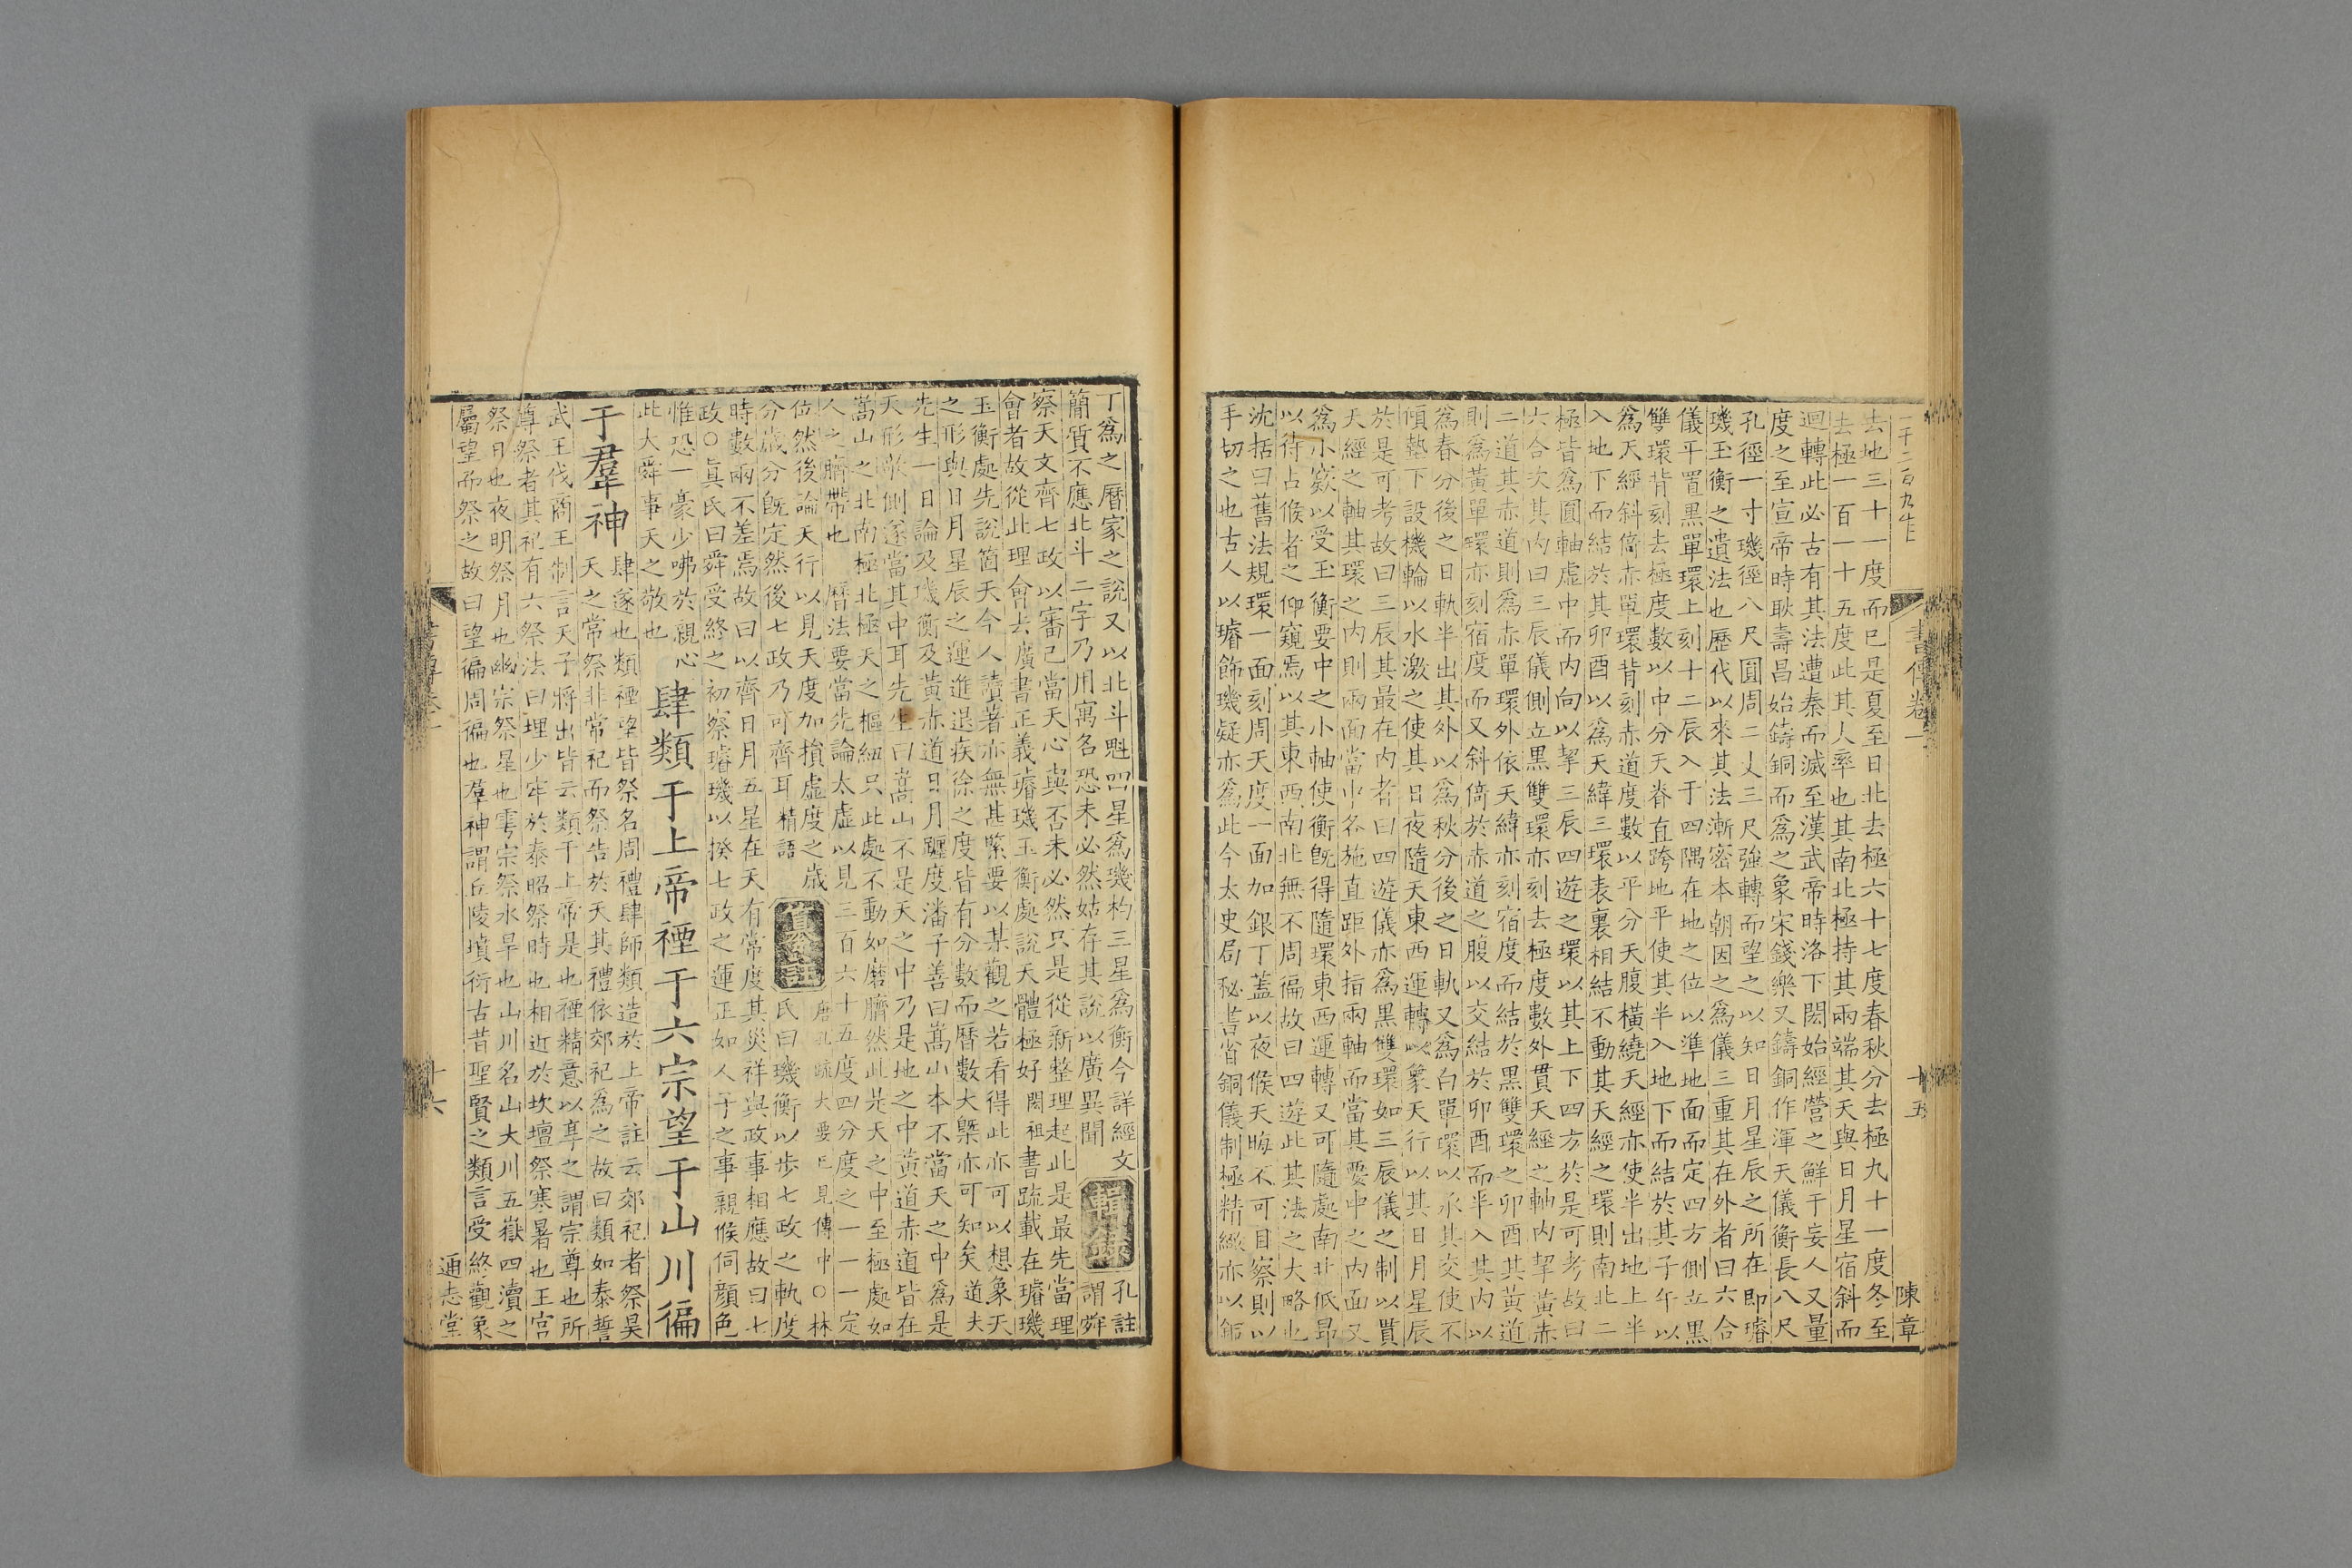 一千二百九字 書傳卷一 十五 陳章
去地三十一度而已是夏至日北去極六十七度春秋分去極九十一度冬至
去極一百一十五度此其大率也其南北極持其兩端其天與日月星宿斜而
迴轉此必古有其法遭秦而滅至漢武帝時洛下閎始經營之鮮于妄人又量
度之至宣帝時耿壽昌始鑄銅而爲之象宋錢樂又鑄銅作渾天儀衡長八尺
孔徑一寸璣徑八尺圓周二丈三尺強轉而望之以知日月星辰之所在即璿
璣玉衡之遺法也歷代以來其法漸密本朝因之爲儀三重其在外者曰六合
儀平置黑單環上刻十二辰入于四隅在地之位以準地面而定四方側立黑
雙環背刻去極度數以中分天脊直跨地平使其半入地下而結於其子午以
爲天經斜倚赤單環背刻赤道度數以平分天腹橫繞天經亦使半出地上半
入地下而結於其卯酉以爲天緯三環表裏相結不動其天經之環則南北二
極皆爲圓軸虛中而内向以挈三辰四遊之環以其上下四方於是可考故曰
六合次其内曰三辰儀側立黑雙環亦刻去極度數外貫天經之軸内挈黃赤
二道其赤道則爲赤單環外依天緯亦刻宿度而結於黑雙環之卯酉其黃道
則爲黃單環亦刻宿度而又斜倚於赤道之腹以交結於卯酉而半入其内以
爲春分後之日軌半出其外以爲秋分後之日軌又爲白單環以承其交使不
傾墊下設機輪以水激之使其日夜隨天東西運轉以象天行以其日月星辰
於是可考故曰三辰其最在内者曰四遊儀亦爲黑雙環如三辰儀之制以貫
天經之軸其環之内則兩面當中各施直距外指兩軸而當其要中之内面又
爲小窾以受玉衡要中之小軸使衡既得隨環東西運轉又可隨處南北低昂
以待占候者之仰窺焉以其東西南北無不周徧故曰四遊此其法之大略也
沈括曰舊法規環一面刻周天度一面加銀丁蓋以夜候天晦不可目察則以
手切之也古人以璿飾璣疑亦爲此今太史局秘書省銅儀制極精緻亦以銅
丁爲之曆家之說又以北斗魁四星爲璣杓三星爲衡今詳經文
簡質不應北斗二字乃用寓名恐未必然姑存其說以廣異聞 輯錄 孔註謂舜
察天文齊七政以審己當天心與否未必然只是從新整理起此是最先當理
會者故從此理會去廣書正義璿璣玉衡處說天體極好閎祖書疏載在璿璣
玉衡處先說箇天今人讀著亦無甚緊要以某觀之若看得此亦可以想象天
之形與日月星辰之運進退疾徐之度皆有分數而曆數大槩亦可知矣道夫
先生一日論及璣衡及黃赤道日月躔度潘子善曰嵩山本不當天之中爲是
天形欹側遂當其中耳先生曰嵩山不是天之中乃是地之中黃道赤道皆在
嵩山之北南極北極天之樞紐只此處不動如磨臍然此是天之中至極處如
人之臍帶也 曆法要當先論太虛以見三百六十五度四分度之一一一定
位然後論天行以見天度加損虛度之歲
分歲分既定然後七政乃可齊耳精語 纂註 唐孔疏大要已見傳中○林氏曰璣衡以步七政之軌度
時數兩不差焉故曰以齊日月五星在天有常度其災祥與政事相應故曰七
政○真氏曰舜受終之初察璿璣以揆七政之運正如人子之事親候伺顔色
惟恐一豪少咈於親心
此大舜事天之敬也 肆類于上帝禋于六宗望于山川徧
于羣神 肆遂也類禋望皆祭名周禮肆師類造於上帝註云郊祀者祭昊
天之常祭非常祀而祭告於天其禮依郊祀爲之故曰類如泰誓
武王伐商王制言天子將出皆云類于上帝是也禋精意以享之謂宗尊也所
尊祭者其祀有六祭法曰埋少牢於泰昭祭時也相近於坎壇祭寒暑也王宮
祭日也夜明祭月也幽宗祭星也雩宗祭水旱也山川名山大川五嶽四瀆之
屬望而祭之故曰望徧周徧也羣神謂丘陵墳衍古昔聖賢之類言受終觀象
書傳卷一 十六 通志堂